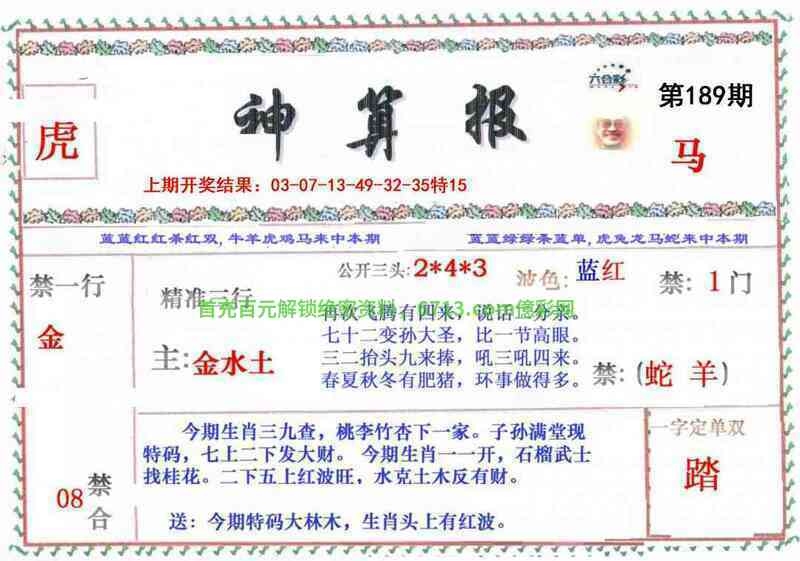 六合彩
第189期
神算报
虎
马
上期开奖结果：03-07-13-49-32-35特15
蓝蓝红红条红双，牛羊虎鸡马来中本期
蓝蓝绿绿条蓝单，虎兔龙马蛇来中本期
禁一行
金
精准三行
主：金水土
公开三头：2*4*3
波色：蓝红
禁：1门
首充百元解锁绝密资料
再次飞腾有四来，说话一分亲。
七十二变孙大圣，比一节高眼。
三二抬头九来捧，吼三吼四来。
春夏秋冬有肥猪，环事做得多。
禁：(蛇 羊)
08
禁合
今期生肖三九查，桃李竹杏下一家。子孙满堂现
特码，七上二下发大财。 今期生肖一一开，石榴武士
找桂花。二下五上红波旺，水克土木反有财。
送：今期特码大林木，生肖头上有红波。
一字定单双
踏